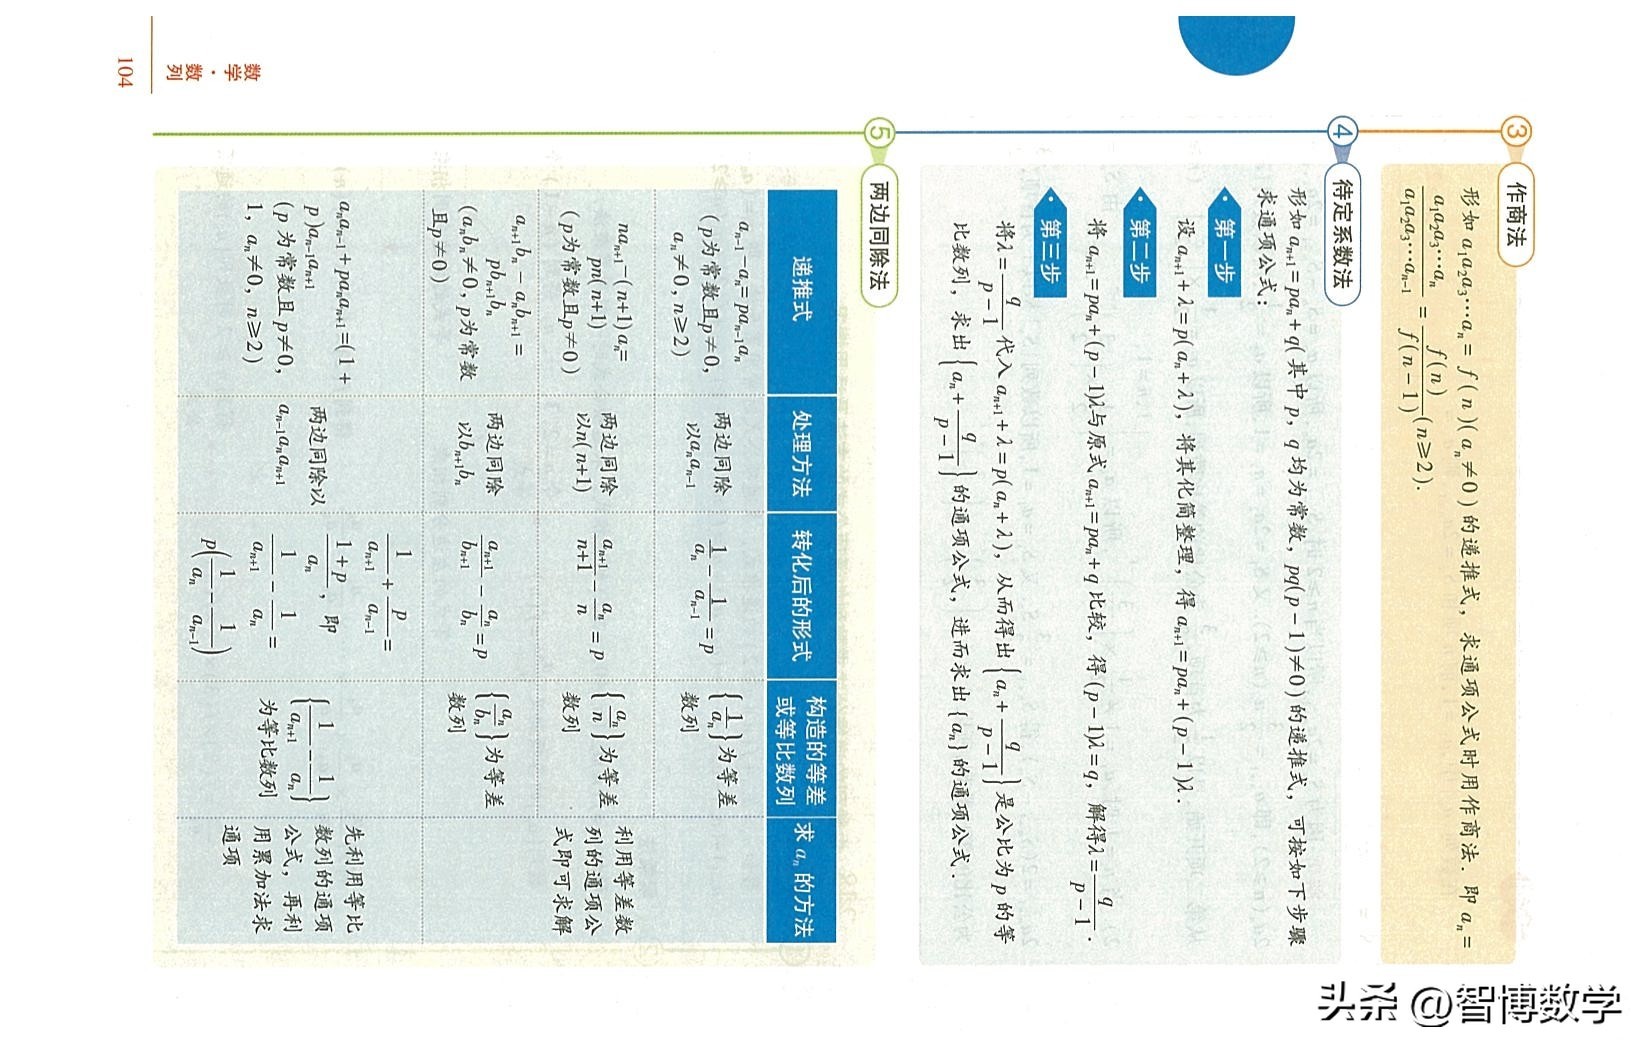 104
数学·数列
③ 作商法
形如 a₁a₂a₃…aₙ = f(n)(aₙ≠0)的递推式，求通项公式时用作商法．即 aₙ =
a₁a₂a₃…aₙ/a₁a₂a₃…aₙ₋₁ = f(n)/f(n-1)(n≥2)．
④ 待定系数法
形如 aₙ₊₁=paₙ+q(其中 p，q 均为常数，pq(p-1)≠0)的递推式，可按如下步骤
求通项公式：
第一步
设 aₙ₊₁+λ=p(aₙ+λ)，将其化简整理，得 aₙ₊₁=paₙ+(p-1)λ．
第二步
将 aₙ₊₁=paₙ+(p-1)λ与原式 aₙ₊₁=paₙ+q 比较，得(p-1)λ=q，解得λ=q/(p-1)．
第三步
将λ=q/(p-1)代入 aₙ₊₁+λ=p(aₙ+λ)，从而得出{aₙ+q/(p-1)}是公比为 p 的等
比数列，求出{aₙ+q/(p-1)}的通项公式，进而求出{aₙ}的通项公式．
⑤ 两边同除法
递推式
处理方法
转化后的形式
构造的等差
或等比数列
求 aₙ 的方法
aₙ₋₁-aₙ=paₙ₋₁aₙ
(p为常数且p≠0，
aₙ≠0，n≥2)
两边同除
以aₙaₙ₋₁
1/aₙ - 1/aₙ₋₁ = p
{1/aₙ}为等差
数列
naₙ₊₁-(n+1)aₙ=
pn(n+1)
(p为常数且p≠0)
两边同除
以n(n+1)
aₙ₊₁/(n+1) - aₙ/n = p
{aₙ/n}为等差
数列
利用等差数
列的通项公
式即可求解
aₙ₊₁bₙ-aₙbₙ₊₁=
pbₙ₊₁bₙ
(aₙbₙ≠0，p为常数
且p≠0)
两边同除
以bₙ₊₁bₙ
aₙ₊₁/bₙ₊₁ - aₙ/bₙ = p
{aₙ/bₙ}为等差
数列
aₙaₙ₋₁+paₙaₙ₊₁=(1+
p)aₙ₋₁aₙ₊₁
(p为常数且p≠0，
1，aₙ≠0，n≥2)
两边同除以
aₙ₋₁aₙaₙ₊₁
1/aₙ₊₁ + p/aₙ₋₁ =
(1+p)/aₙ，即
1/aₙ₊₁ - 1/aₙ =
p(1/aₙ - 1/aₙ₋₁)
{1/aₙ₊₁ - 1/aₙ}
为等比数列
先利用等比
数列的通项
公式，再利
用累加法求
通项
头条 @智博数学